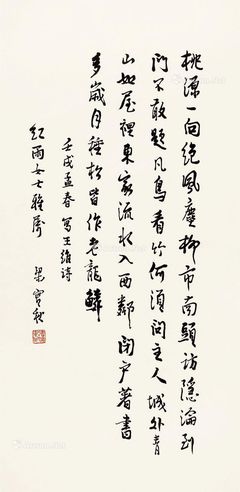 桃源一向絕風塵柳市南頭訪隱淪到
門不敢題凡鳥看竹何須問主人城外青
山如屋裡東家流水入西鄰閉戶著書
多歲月種松皆作老龍鱗
壬戌孟春寫王維詩
紅雨女士雅屬
梁實秋